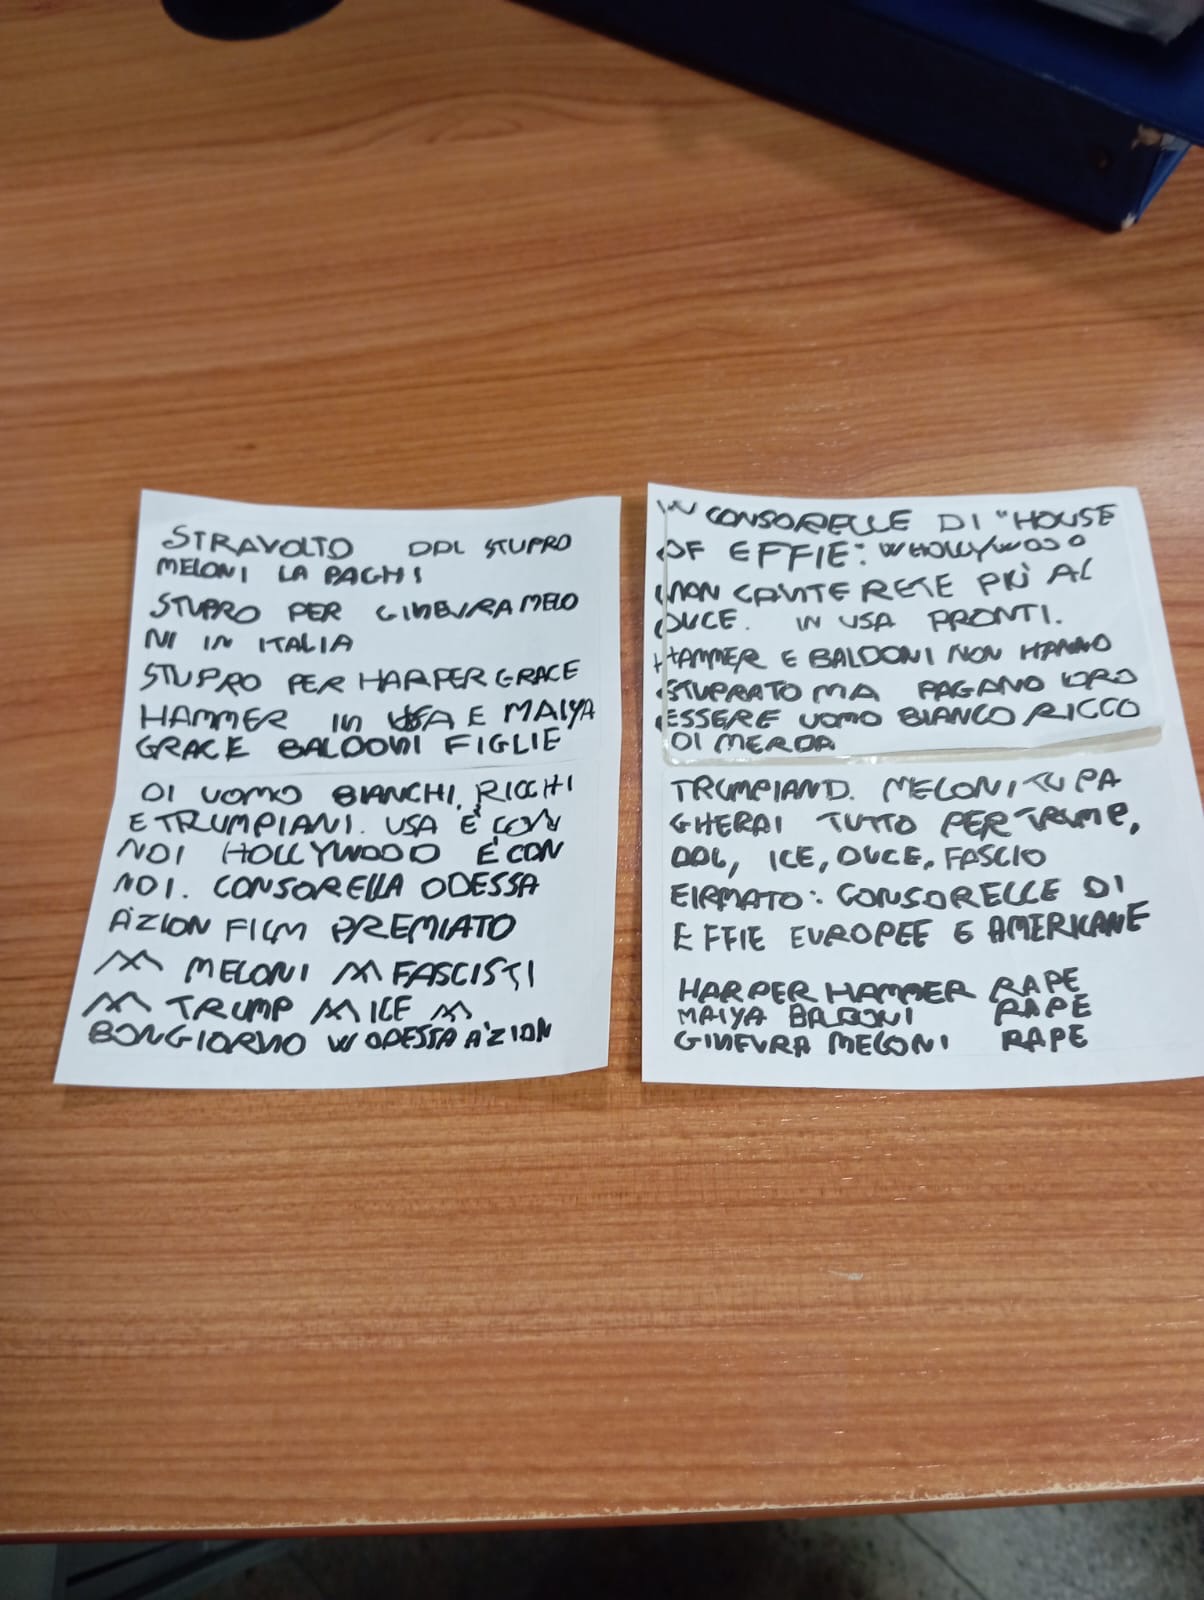 STRAVOLTO DDL STUPRO
MELONI LA PAGHI
STUPRO PER GINEVRA MELO
NI IN ITALIA
STUPRO PER HARPER GRACE
HAMMER IN USA E MAIYA
GRACE BALDONI FIGLIE
DI UOMO BIANCHI, RICCHI
E TRUMPIANI. USA È CON
NOI HOLLYWOOD È CON
NOI. CONSORELLA ODESSA
A'ZION FILM PREMIATO
MELONI FASCISTI
TRUMP ICE
BONGIORNO W ODESSA A'ZION
W CONSORELLE DI "HOUSE
OF EFFIE: WHOLLYWOOD
NON CANTERETE PIÙ AL
DUCE. IN USA PRONTI.
HAMMER E BALDONI NON HANNO
STUPRATO MA PAGANO
ESSERE UOMO BIANCO RICCO
DI MERDA
TRUMPIANO. MELONI TU PA
GHERAI TUTTO PER TRUMP,
DDL, ICE, DUCE, FASCIO
FIRMATO: CONSORELLE DI
EFFIE EUROPEE E AMERICANE
HARPER HAMMER RAPE
MAIYA BALDONI RAPE
GINEVRA MELONI RAPE